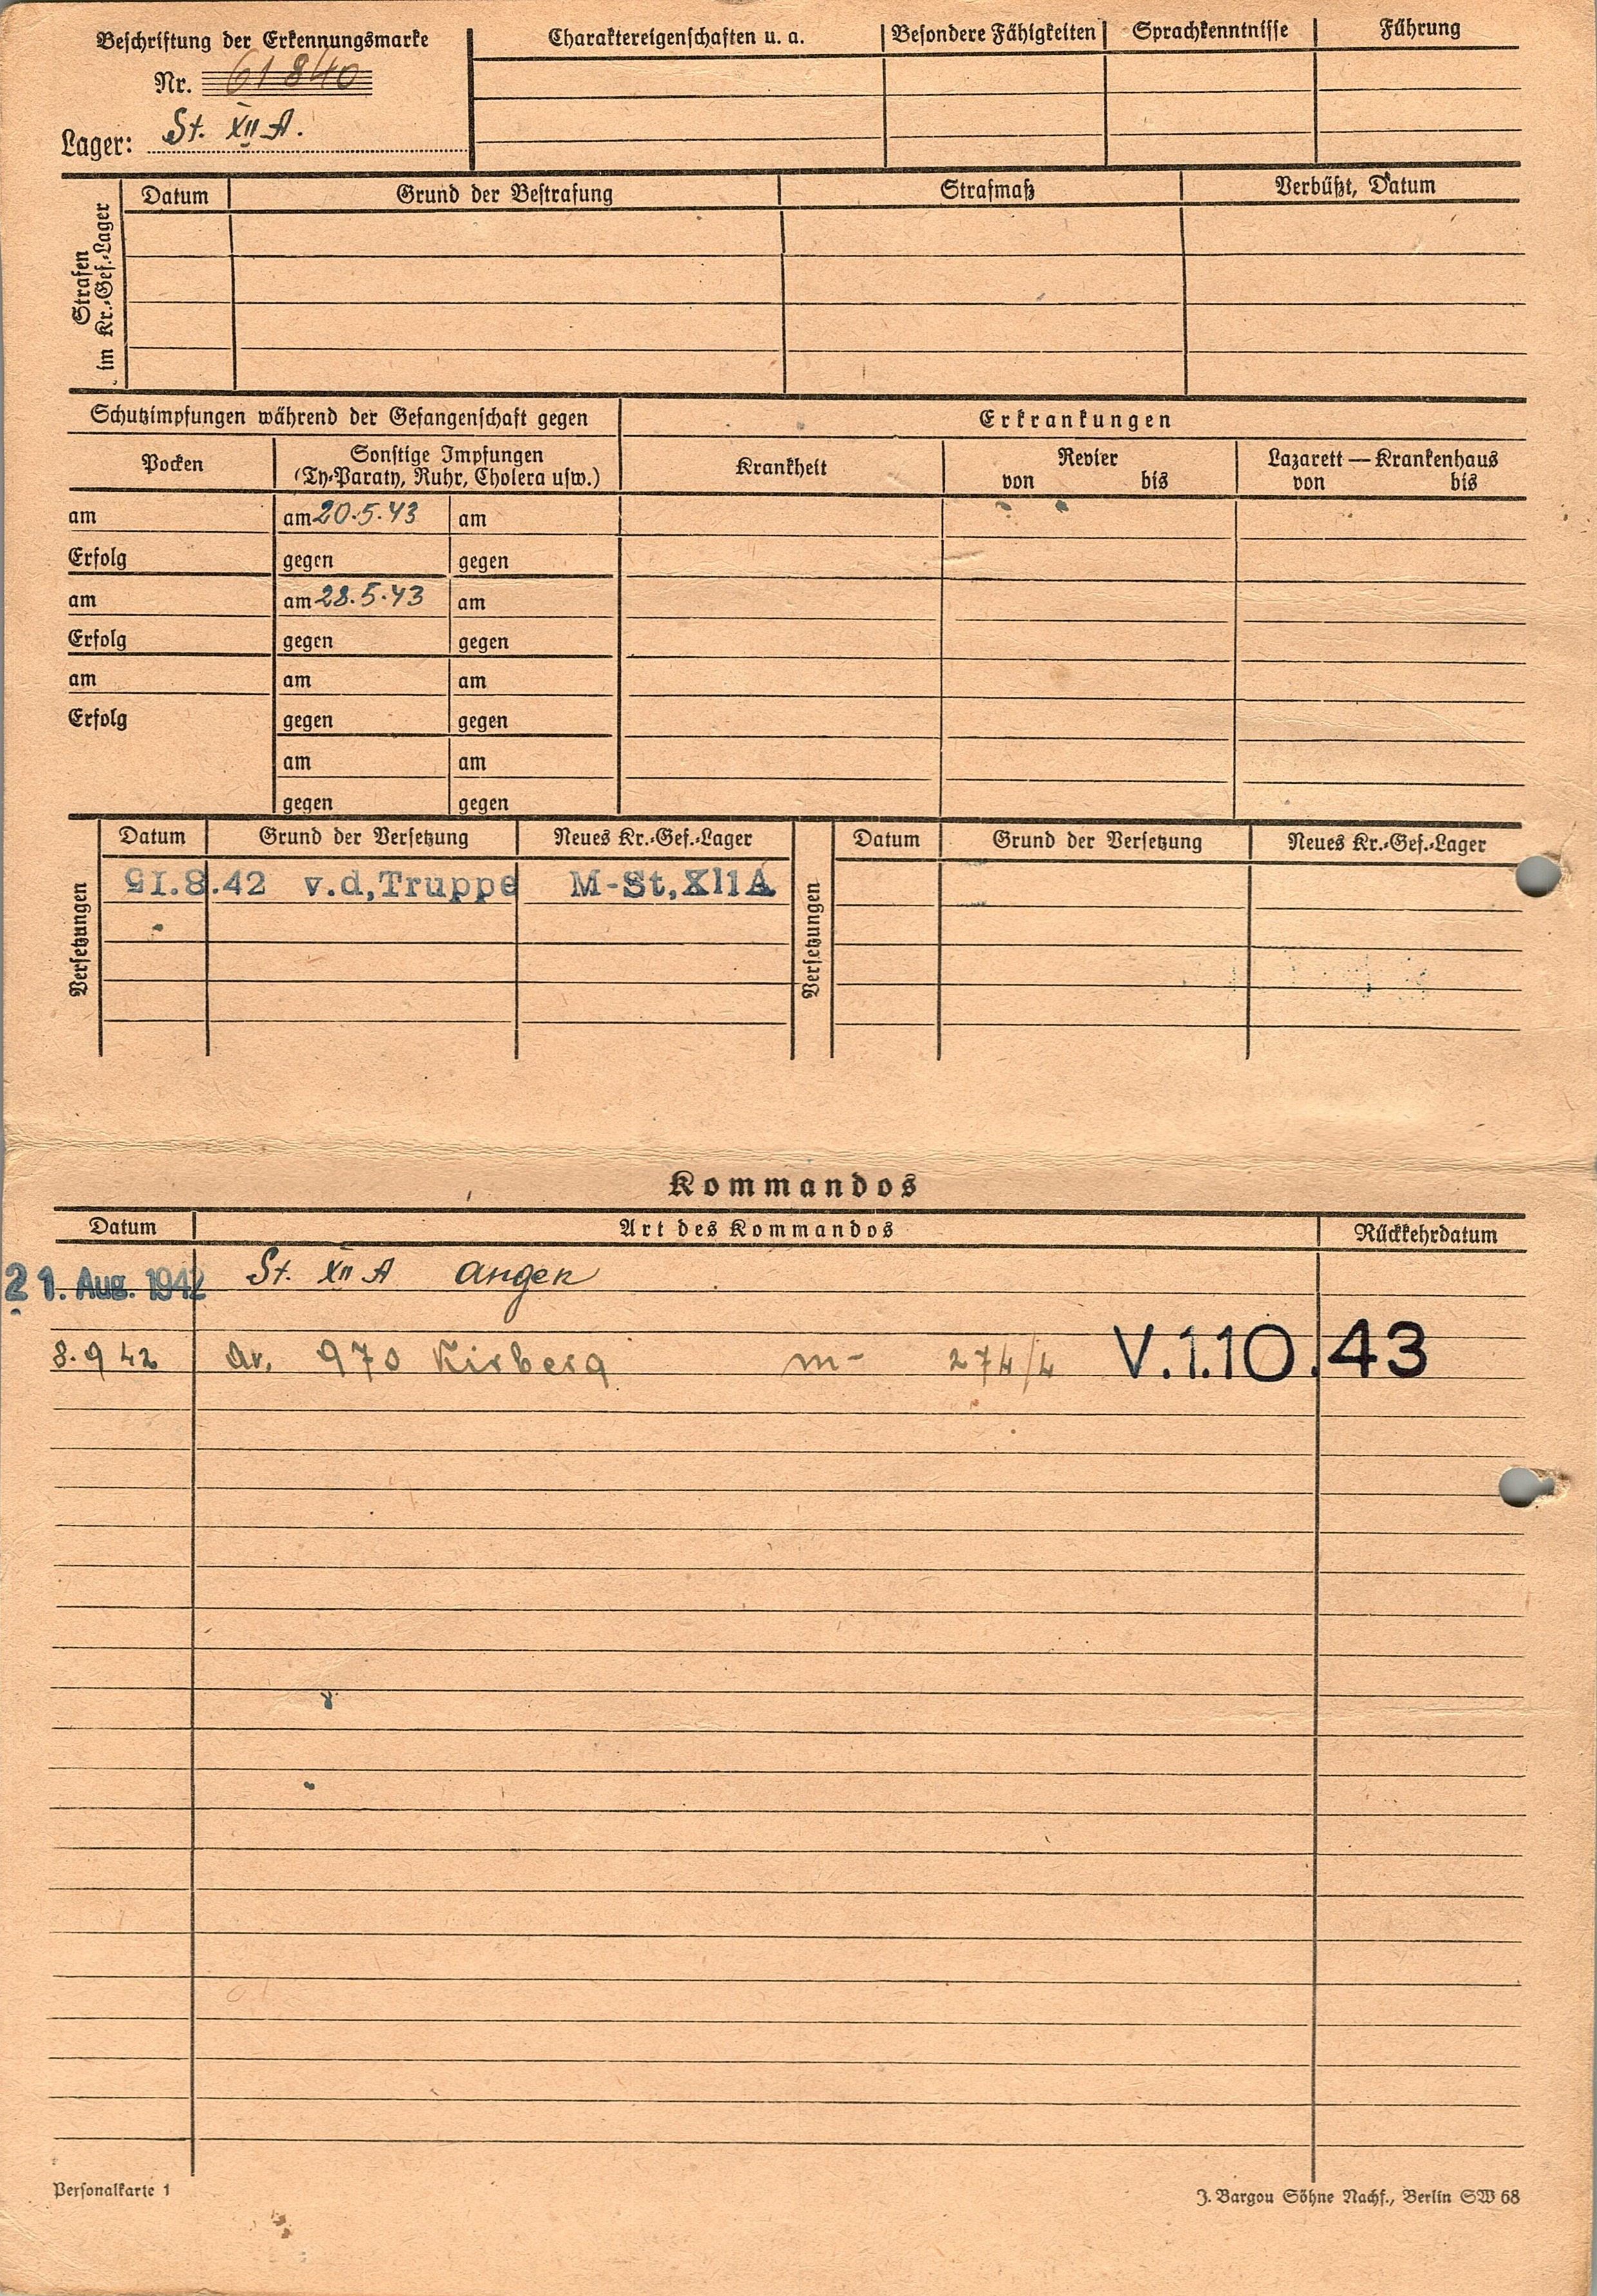 Beschriftung der Erkennungsmarke
Nr. 61840
Lager: St. XII A.
Charaktereigenschaften u. a. Besondere Fähigkeiten Sprachkenntnisse Führung
Strafen im Kr.-Gef.-Lager
Datum Grund der Bestrafung Strafmaß Verbüßt, Datum
Schutzimpfungen während der Gefangenschaft gegen Erkrankungen
Pocken Sonstige Impfungen Krankheit Revier Lazarett — Krankenhaus
(Ty-Paraty, Ruhr, Cholera usw.) von bis von bis
am am 20.5.43 am
Erfolg gegen gegen
am am 28.5.43 am
Erfolg gegen gegen
am am am
Erfolg gegen gegen
am am
gegen gegen
Versetzungen Datum Grund der Versetzung Neues Kr.-Gef.-Lager Versetzungen Datum Grund der Versetzung Neues Kr.-Gef.-Lager
21.8.42 v.d,Truppe M-St,XIIA
Kommandos
Datum Art des Kommandos Rückkehrdatum
21. Aug. 1942 St. XII A
8.9 42 970 Kirberg m- 274/4 V.1.10.43
Personalkarte 1 J. Bargou Söhne Nachf., Berlin SW 68